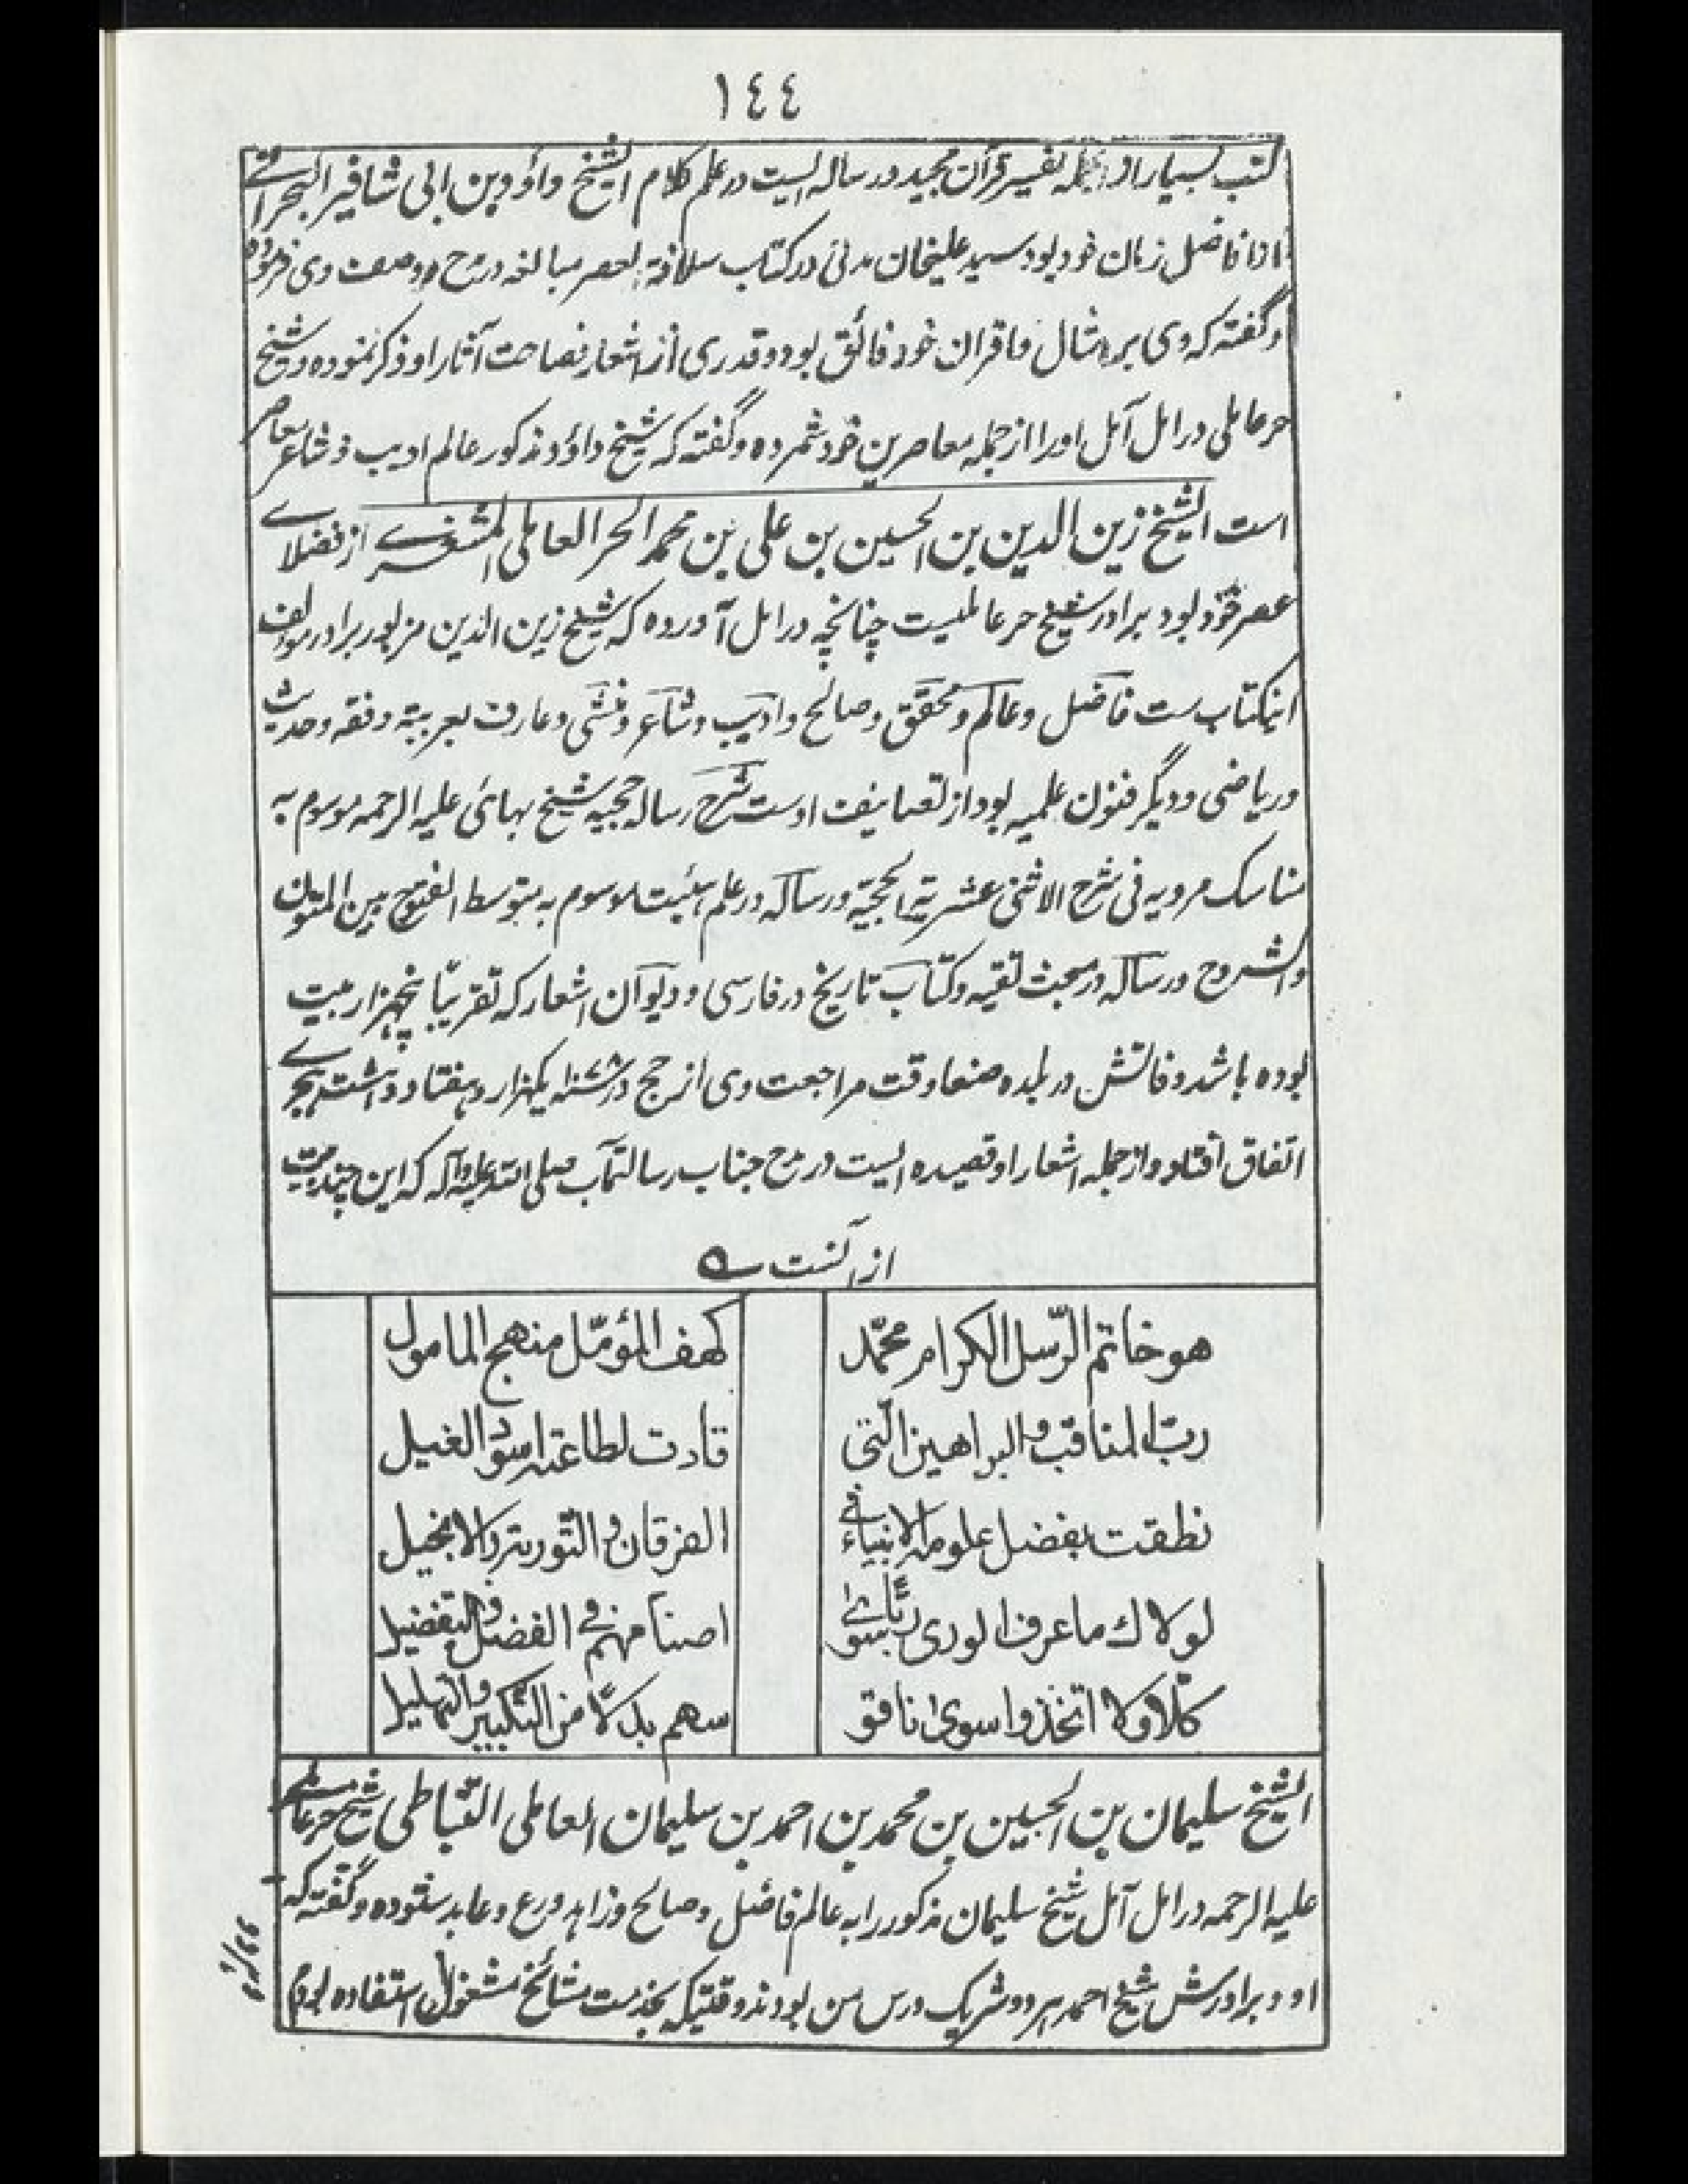 ١٤٤
کتب بسیار او جمله تفسیر قرآن مجید و رساله ایست در علم کلام الشیخ داؤد بن ابی شافیر البحرانی
از افاضل زمان خود بود سید علیخان مدنی در کتاب سلافة العصر مبالغه در مدح و وصف وی فرموده
و گفته که وی بر امثال و اقران خود فائق بود و قدری از اشعار فصاحت آثار او ذکر نموده و شیخ
حر عاملی در امل آمل او را از جمله معاصرین خود شمرده و گفته که شیخ داؤد مذکور عالم ادیب و شاعر معاصر
است الشیخ زین الدین بن الحسین بن علی بن محمد الحر العاملی المشغری از فضلای
عصر خود بود برادر شیخ حر عاملیست چنانچه در امل آورده که شیخ زین الدین مزبور برادر مولف
اینکتاب ست فاضل و عالم و محقق و صالح و ادیب و شاعر و منشی و عارف بعربیة و فقه و حدیث
و ریاضی و دیگر فنون علمیه بود از تصانیف اوست شرح رساله حجیه شیخ بهائی علیه الرحمه موسوم به
مناسک مرویه فی شرح الاثنی عشریة الحجیة و رساله در علم هیئت موسوم به متوسط الفتوح بین المتون
والشروح و رساله در مبحث تقیه و کتاب تاریخ در فارسی و دیوان اشعار که تقریبًا پنجهزار بیت
بوده باشد وفاتش در بلده صنعا وقت مراجعت وی از حج در ۱۰۷۸ سنه یکهزار و هفتاد و هشت هجری
اتفاق افتاد و از جمله اشعار او قصیده ایست در مدح جناب رسالتمآب صلی الله علیه وآله که این چند بیت
از آنست
هو خاتم الرّسل الکرام محمّد کهف المؤمّل منهج المامول
ربّ المناقب والبراهین الّتی قادت لطاعته اسود الغیل
نطقت بفضل علومه الانبیاء فی الفرقان والتّوریة والانجیل
لولاک ما عرف الوری ربًّا سوی اصنامهم فی الفضل والتفضیل
کلّا ولا اتخذوا سوی ناقو سهم بدلًا من التکبیر والتهلیل
الشیخ سلیمان بن الحسین بن محمد بن احمد بن سلیمان العاملی النّباطی شیخ حر عاملی
علیه الرحمه در امل آمل شیخ سلیمان مذکور را به عالم فاضل و صالح و زاهد و ورع و عابد ستوده و گفته که
او و برادرش شیخ احمد هر دو شریک درس من بودند وقتیکه بخدمت مشائخ مشغول استفاده بودم